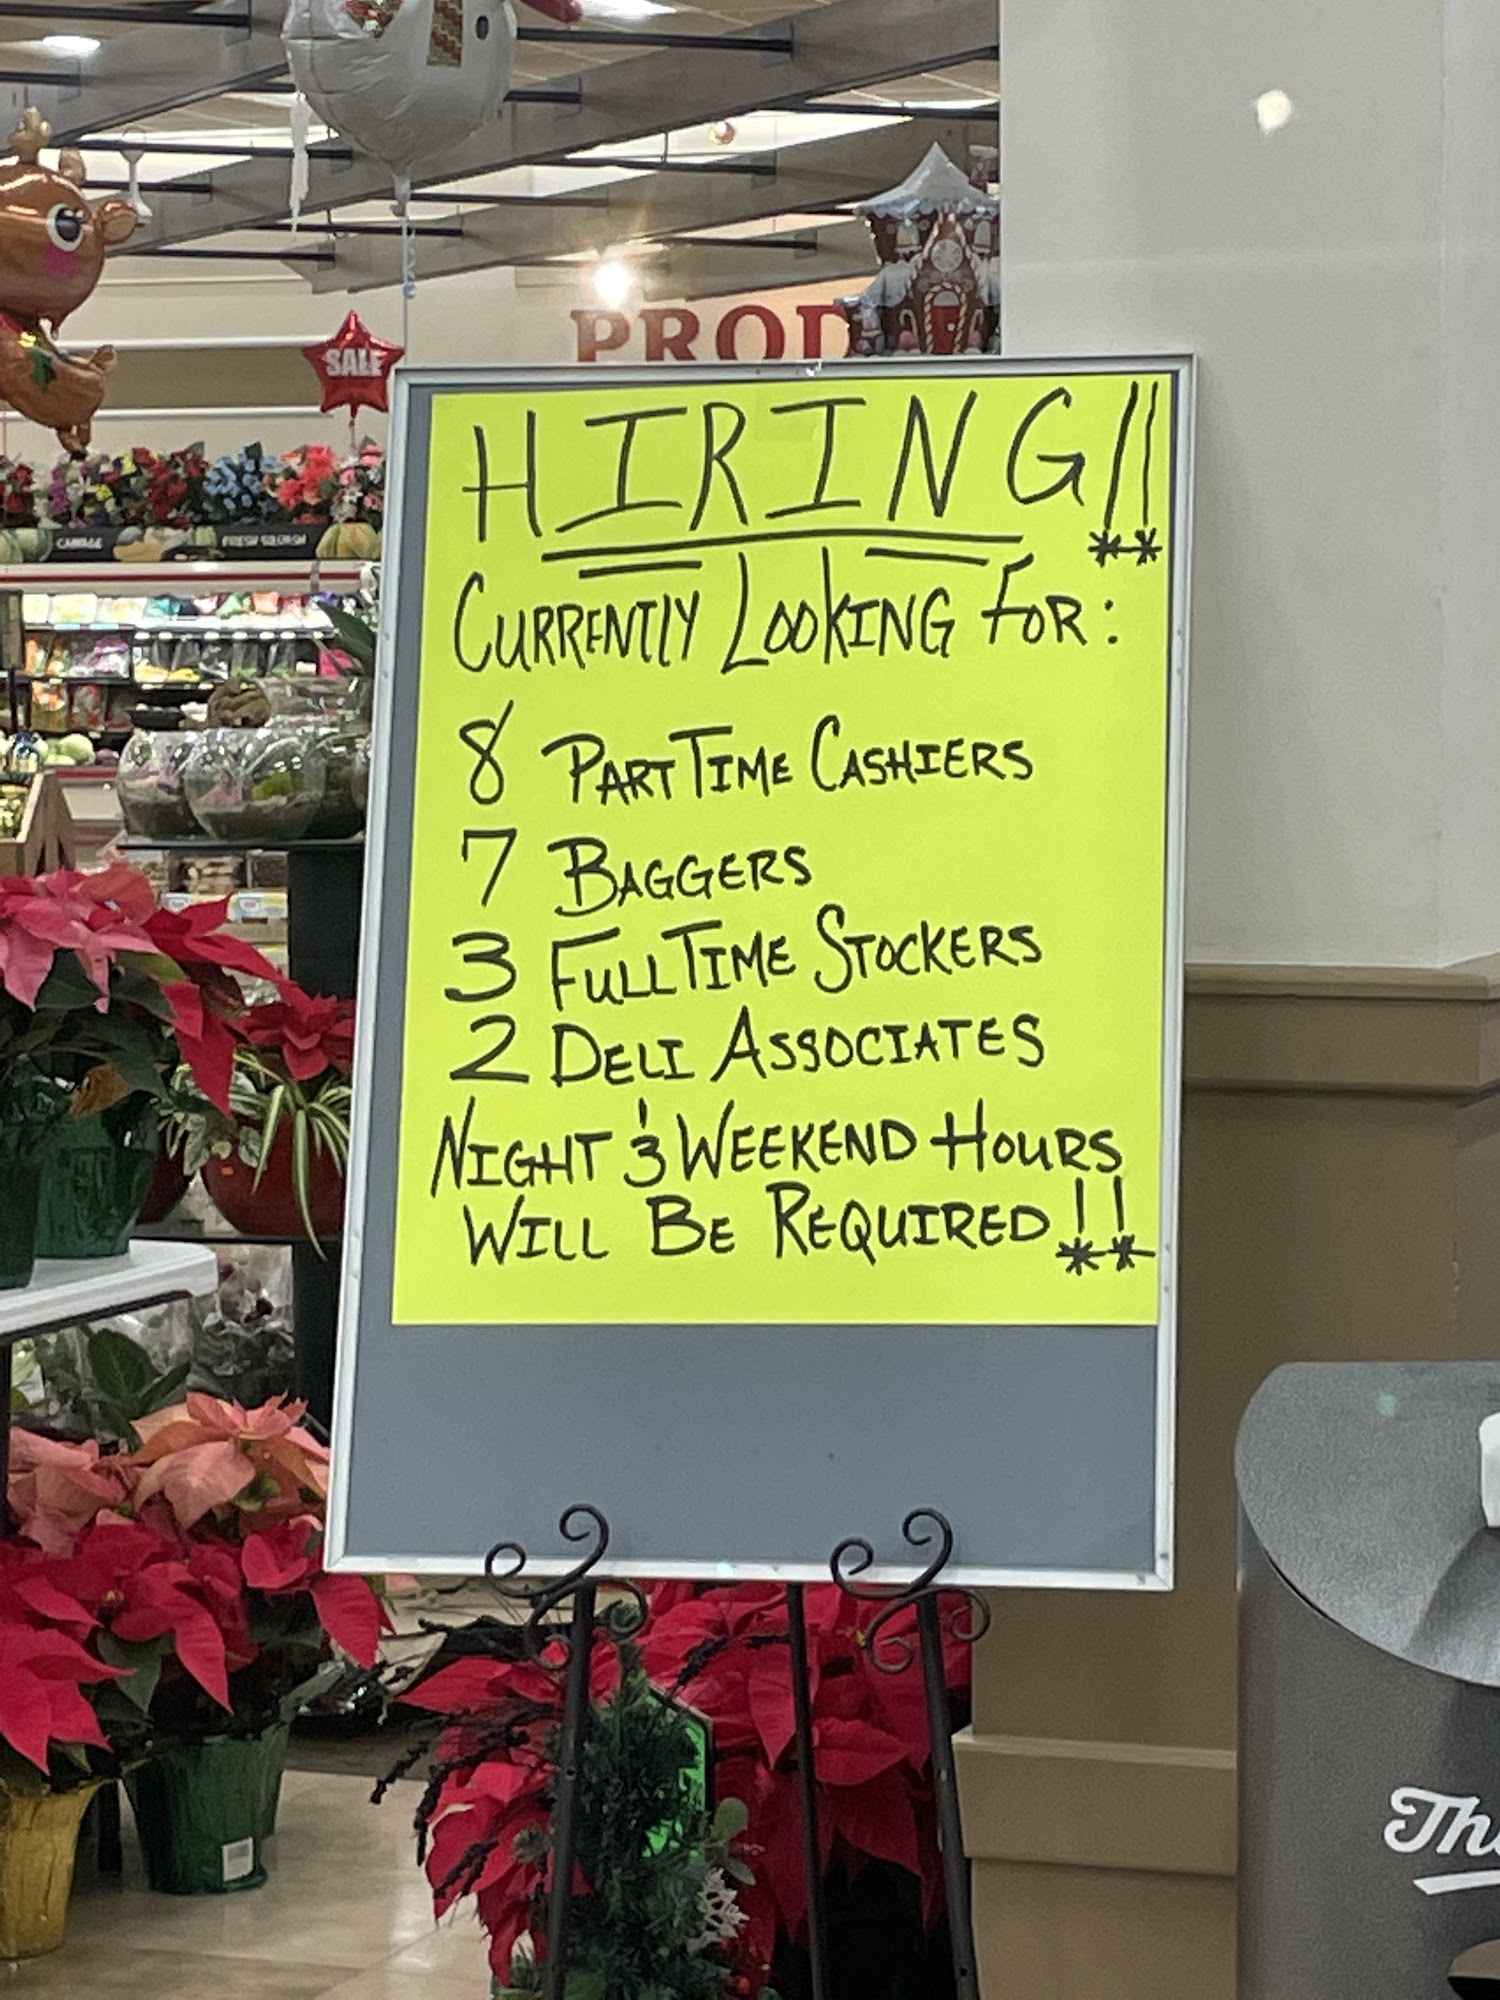 SALE
PROD
CABBAGE
FRESH SQUASH
HIRING!!
CURRENTLY LOOKING FOR:
8 PART TIME CASHIERS
7 BAGGERS
3 FULL TIME STOCKERS
2 DELI ASSOCIATES
NIGHT & WEEKEND HOURS
WILL BE REQUIRED!!
Th